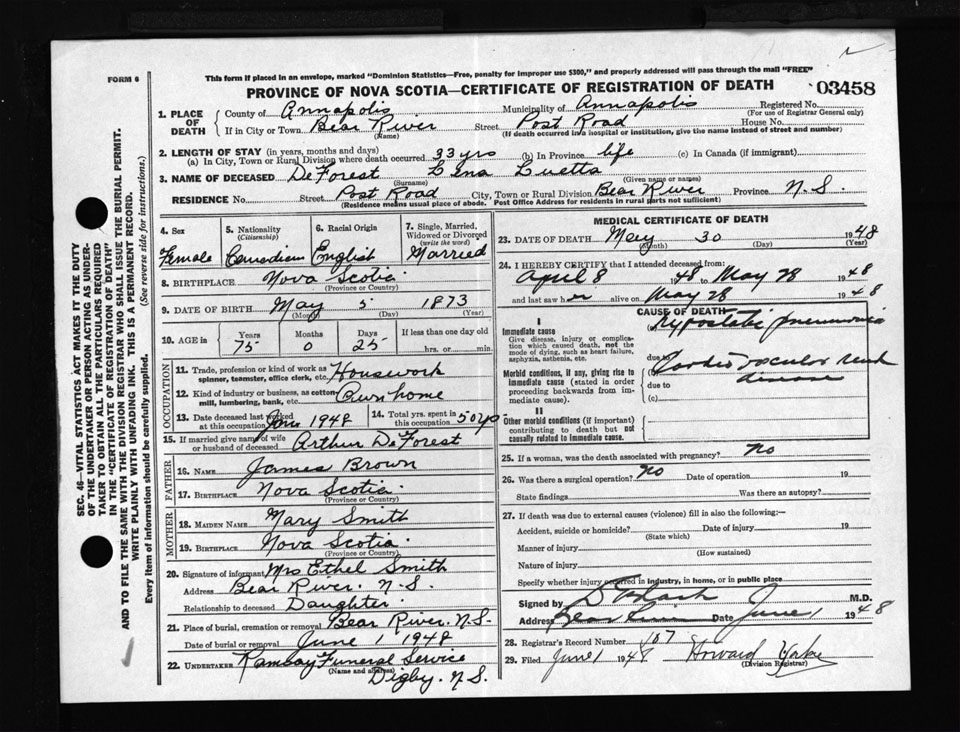 FORM 6
This form if placed in an envelope, marked "Dominion Statistics—Free, penalty for improper use $300," and properly addressed will pass through the mail "FREE"
PROVINCE OF NOVA SCOTIA—CERTIFICATE OF REGISTRATION OF DEATH 03458
1. PLACE OF DEATH
County of Annapolis Municipality of Annapolis Registered No.
(For use of Registrar General only)
If in City or Town Bear River Street Post Road House No.
(Name) (If death occurred in a hospital or institution, give the name instead of street and number)
2. LENGTH OF STAY (in years, months and days)
(a) In City, Town or Rural Division where death occurred 33 yrs (b) In Province life (c) In Canada (if immigrant)
3. NAME OF DECEASED DeForest Lena Luetta
(Surname) (Given name or names)
RESIDENCE No. Street Post Road City, Town or Rural Division Bear River Province N.S.
(Residence means usual place of abode. Post Office Address for residents in rural parts not sufficient)
4. Sex 5. Nationality (Citizenship) 6. Racial Origin 7. Single, Married, Widowed or Divorced (write the word)
Female Canadian English Married
8. BIRTHPLACE Nova Scotia
(Province or Country)
9. DATE OF BIRTH May 5 1873
(Month) (Day) (Year)
10. AGE in Years Months Days If less than one day old
75 0 25 hrs. or min.
OCCUPATION
11. Trade, profession or kind of work as spinner, teamster, office clerk, etc. Housework
12. Kind of industry or business, as cotton mill, lumbering, bank, etc. Own home
13. Date deceased last worked at this occupation 1948
14. Total yrs. spent in this occupation 50 yrs
15. If married give name of wife or husband of deceased Arthur DeForest
FATHER
16. NAME James Brown
17. BIRTHPLACE Nova Scotia
(Province or Country)
MOTHER
18. MAIDEN NAME Mary Smith
19. BIRTHPLACE Nova Scotia
(Province or Country)
20. Signature of informant Mrs Ethel Smith
Address Bear River. N.S.
Relationship to deceased Daughter
21. Place of burial, cremation or removal Bear River. N.S.
Date of burial or removal June 1 1948
22. UNDERTAKER Ramsay Funeral Service
(Name and address)
Digby. N.S.
MEDICAL CERTIFICATE OF DEATH
23. DATE OF DEATH May 30 1948
(Month) (Day) (Year)
24. I HEREBY CERTIFY that I attended deceased from:
April 8 48 to May 28 1948
and last saw her alive on May 28 1948
CAUSE OF DEATH
I
Immediate cause
Give disease, injury or complication which caused death, not the mode of dying, such as heart failure, asphyxia, asthenia, etc.
Hypostatic pneumonia
due to
Morbid conditions, if any, giving rise to immediate cause (stated in order proceeding backwards from immediate cause).
Cardio Vascular Renal disease
due to
(c)
II
Other morbid conditions (if important) contributing to death but not causally related to immediate cause.
25. If a woman, was the death associated with pregnancy? no
26. Was there a surgical operation? no Date of operation 19
State findings Was there an autopsy?
27. If death was due to external causes (violence) fill in also the following:—
Accident, suicide or homicide? Date of injury 19
(State which)
Manner of injury
(How sustained)
Nature of injury
Specify whether injury occurred in industry, in home, or in public place
Signed by M.D.
Address Bear River Date June 1 1948
28. Registrar's Record Number 107
29. Filed June 1 1948 Howard
(Division Registrar)
SEC. 46—VITAL STATISTICS ACT MAKES IT THE DUTY
OF THE UNDERTAKER OR PERSON ACTING AS UNDER-
TAKER TO OBTAIN ALL THE PARTICULARS REQUIRED
IN THE "CERTIFICATE OF REGISTRATION OF DEATH"
AND TO FILE THE SAME WITH THE DIVISION REGISTRAR WHO SHALL ISSUE THE BURIAL PERMIT.
WRITE PLAINLY WITH UNFADING INK. THIS IS A PERMANENT RECORD.
Every item of information should be carefully supplied. (See reverse side for instructions.)